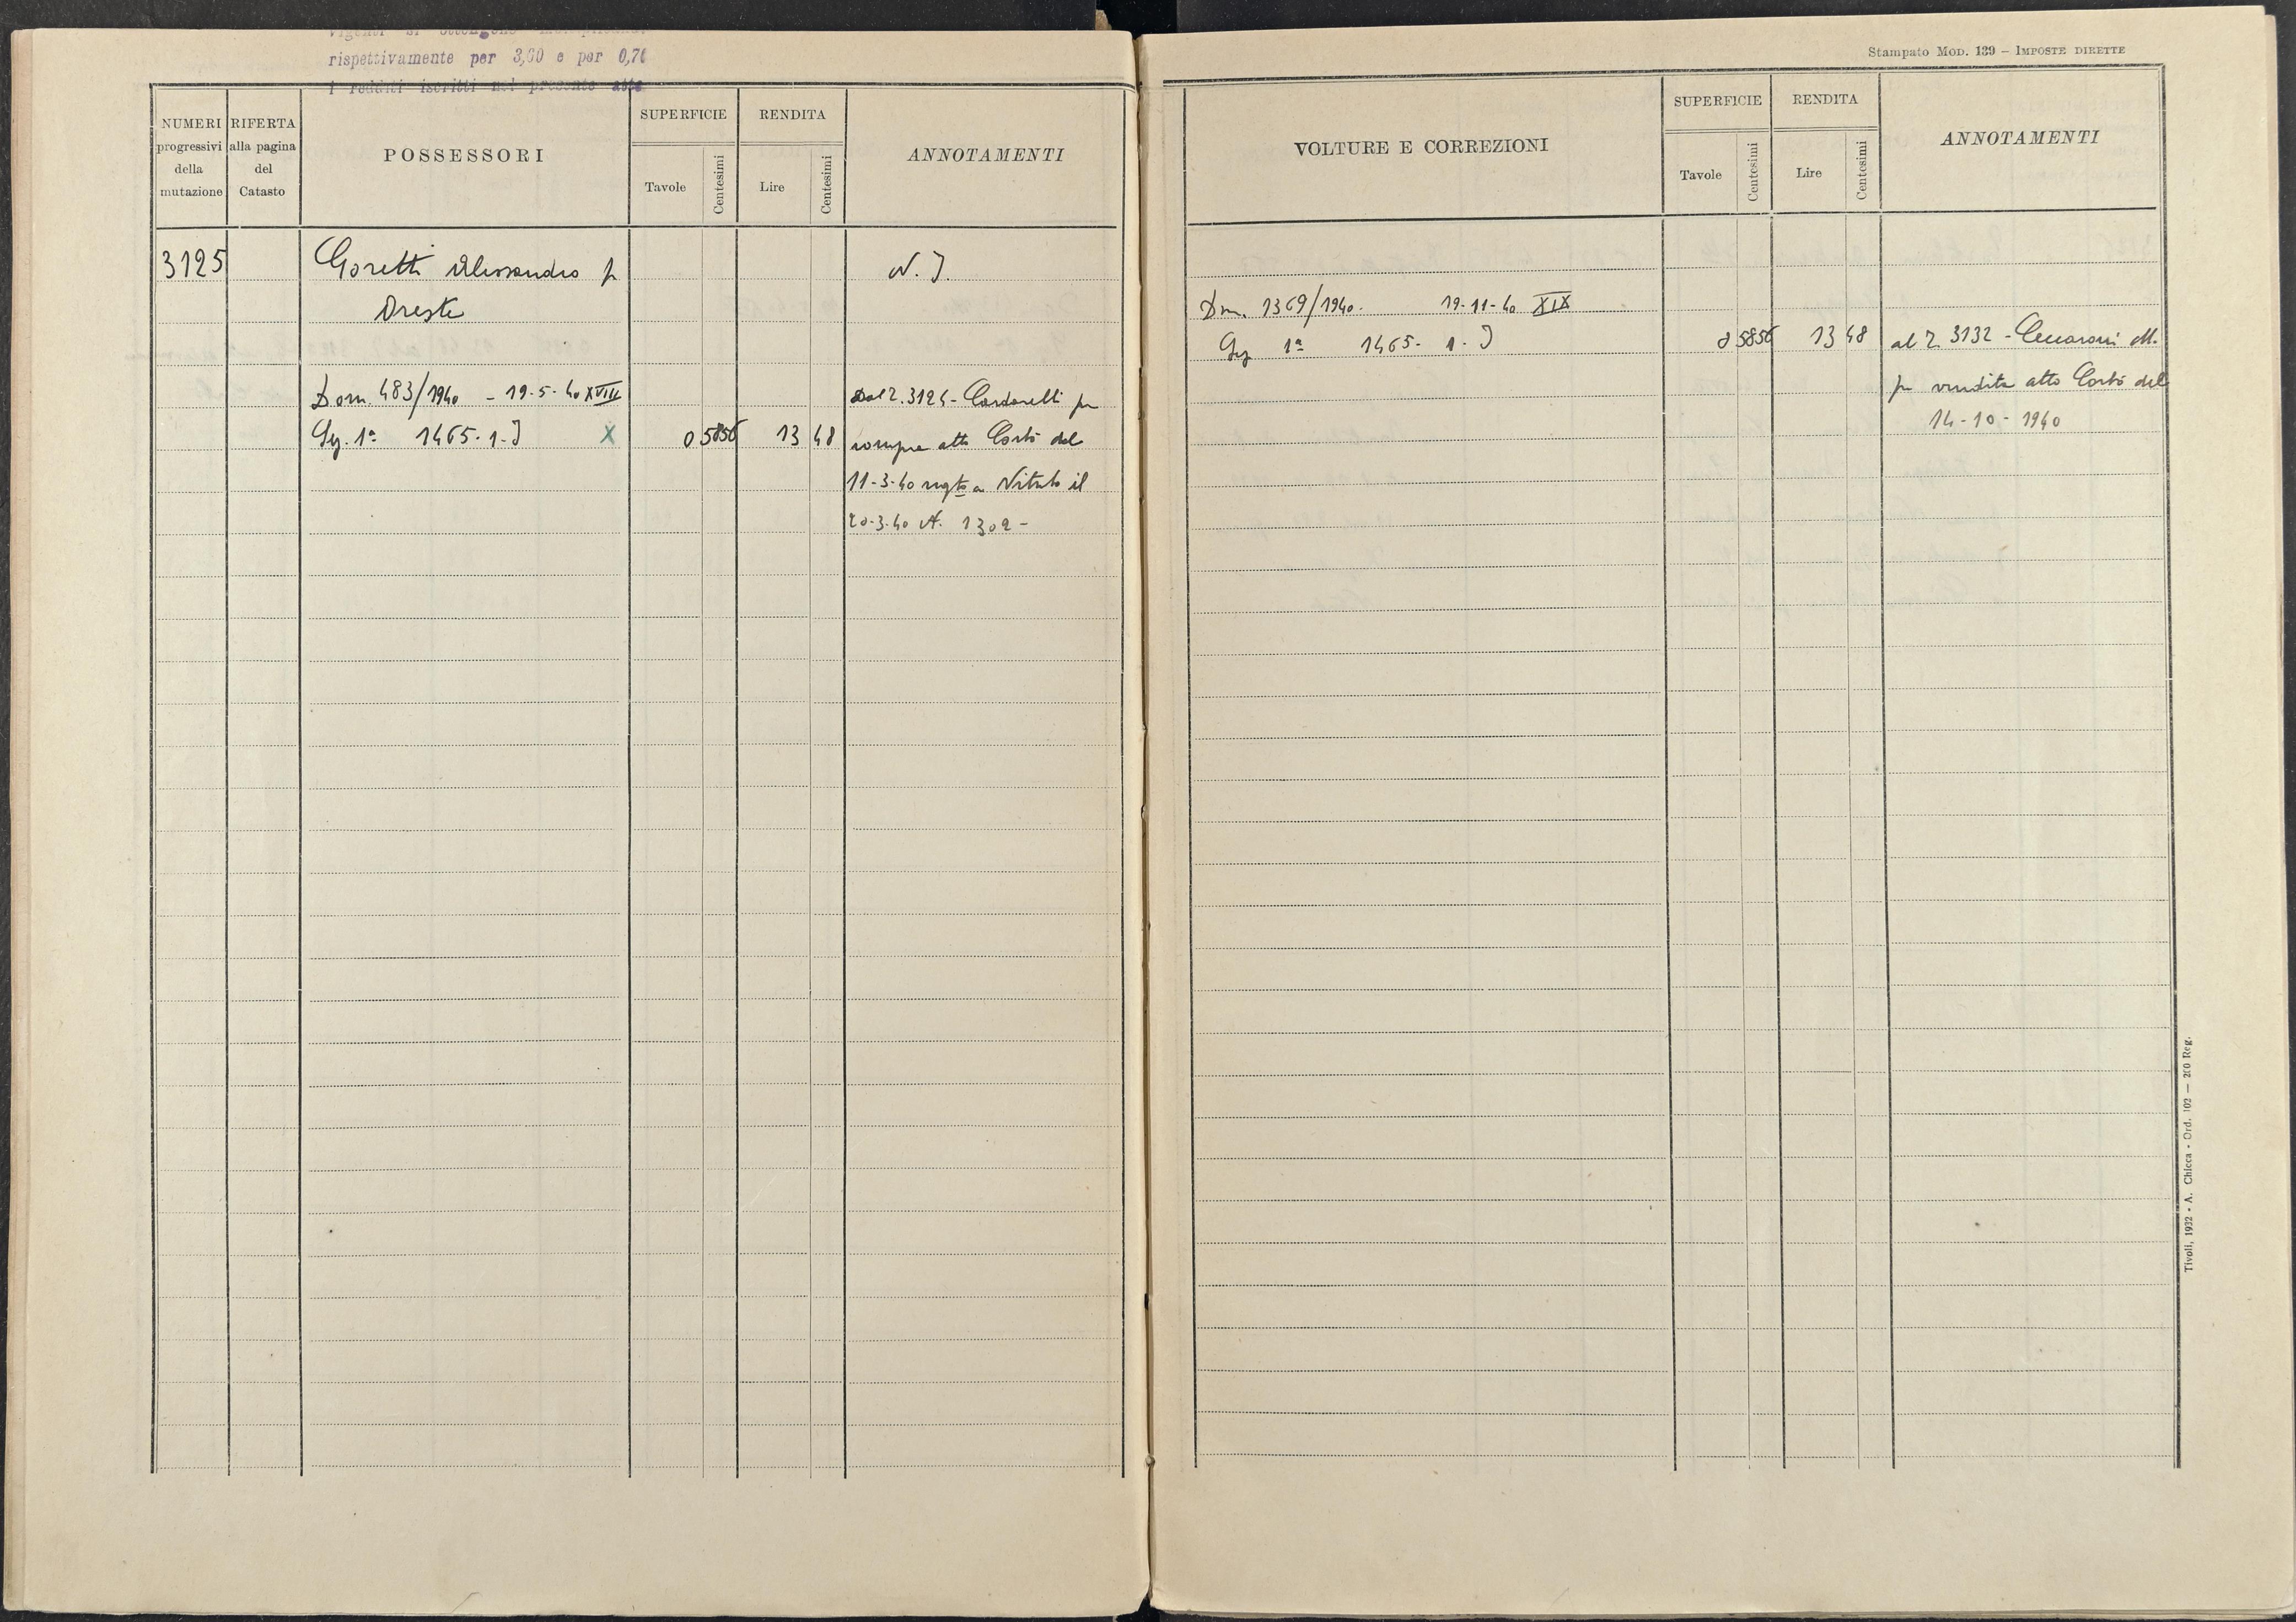 rispettivamente per 3,60 e per 0,70
i redditi iscritti nel presente atto
NUMERI progressivi della mutazione
RIFERTA alla pagina del Catasto
POSSESSORI
SUPERFICIE
Tavole
Centesimi
RENDITA
Lire
Centesimi
ANNOTAMENTI
3125
Goretti Alessandro fu
N. I
Oreste
Dom. 483/1940 - 19-5-40 XVIII
Dal 2. 3124 - Cardarelli per
Sez. 1ª 1465-1-I X 0 5856 13 48
compra atto Cortò del
11-3-40 regto a Viterbo il
20-3-40 N. 1302 -
Stampato MOD. 139 – IMPOSTE DIRETTE
VOLTURE E CORREZIONI
SUPERFICIE
Tavole
Centesimi
RENDITA
Lire
Centesimi
ANNOTAMENTI
Dom. 1369/1940. 19-11-40 XIX
Sez 1ª 1465- 1-I 0 5856 13 48
al 2. 3132 - Ceccaroni M.
per vendita atto Cortò del
14-10-1940
Tivoli, 1932 - A. Chicca - Ord. 102 — 200 Reg.